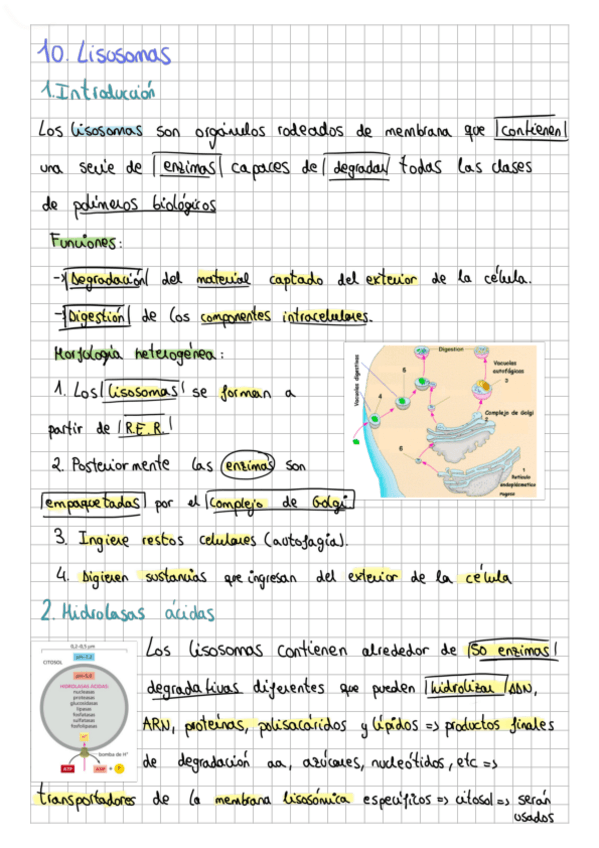 10. Lisosomas
1. Introducción
Los lisosomas son orgánulos rodeados de membrana que contienen
una serie de enzimas capaces de degradar todas las clases
de polímeros biológicos
Funciones:
→ Degradación del material captado del exterior de la célula.
→ Digestión de los componentes intracelulares.
Morfología heterogénea:
1. Los lisosomas se forman a
partir de R.E.R.
2. Posteriormente las enzimas son
empaquetadas por el Complejo de Golgi
3. Ingiere restos celulares (autofagia).
4. Digieren sustancias que ingresan del exterior de la célula
Digestion
Vacuolas digestivas
Vacuolas
autofágicas
5
3
4
Complejo de Golgi
2
6
1
Retículo
endoplasmático
rugoso
2. Hidrolasas ácidas
0,2-0,5 μm
CITOSOL
pH~7,2
pH~5,0
HIDROLASAS ÁCIDAS:
nucleasas
proteasas
glucosidasas
lipasas
fosfatasas
sulfatasas
fosfolipasas
H⁺
bomba de H⁺
ATP
ADP + P
Los lisosomas contienen alrededor de 50 enzimas
degradativas diferentes que pueden hidrolizar ADN,
ARN, proteínas, polisacáridos y lípidos => productos finales
de degradación aa, azúcares, nucleótidos, etc =>
transportadores de la membrana lisosómica específicos => citosol => serán
usados